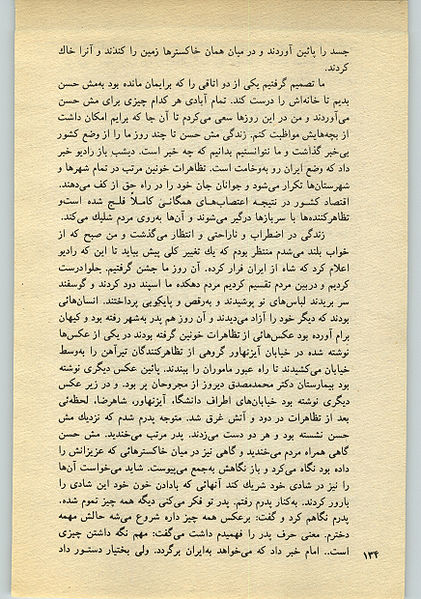 جسد را پائین آوردند و در میان همان خاکسترها زمین را کندند و آنرا خاك
کردند.
ما تصمیم گرفتیم یکی از دو اتاقی را که برایمان مانده بود به‌مش حسن
بدیم تا خانه‌اش را درست کند. تمام آبادی هر کدام چیزی برای مش حسن
می‌آوردند و من در این روزها سعی می‌کردم تا آن جا که برایم امکان داشت
از بچه‌هایش مواظبت کنم. زندگی مش حسن تا چند روز ما را از وضع کشور
بی‌خبر گذاشت و ما نتوانستیم بدانیم که چه خبر است. دیشب باز رادیو خبر
داد که وضع ایران رو به‌وخامت است. تظاهرات خونین مرتب در تمام شهرها و
شهرستان‌ها تکرار می‌شود و جوانان جان خود را در راه حق از کف می‌دهند.
اقتصاد کشور در نتیجه اعتصاب‌های همگانی کاملاً فلج شده است و
تظاهرکننده‌ها با سربازها درگیر می‌شوند و آن‌ها به‌روی مردم شلیك می‌کند.
زندگی در اضطراب و ناراحتی و انتظار می‌گذشت و من صبح که از
خواب بلند می‌شدم منتظر بودم که یك تغییر کلی پیش بیاید تا این که رادیو
اعلام کرد که شاه از ایران فرار کرده. آن روز ما جشن گرفتیم. حلوا درست
کردیم و دربین مردم تقسیم کردیم مردم دهکده ما اسپند دود کردند و گوسفند
سر بریدند لباس‌های نو پوشیدند و به‌رقص و پایکوبی پرداختند. انسان‌هائی
بودند که دیگر خود را آزاد می‌دیدند و آن روز هم پدر به‌شهر رفته بود و کیهان
برام آورده بود عکس‌هائی از تظاهرات خونین گرفته بودند در یکی از عکس‌ها
نوشته شده در خیابان آیزنهاور گروهی از تظاهرکنندگان تیرآهن را به‌وسط
خیابان می‌کشیدند تا راه عبور ماموران را ببندند. پائین عکس دیگری نوشته
بود بیمارستان دکتر محمدمصدق دیروز از مجروحان پر بود. و در زیر عکس
دیگری نوشته بود خیابان‌های اطراف دانشگاه، آیزنهاور، شاهرضا، لحظه‌ئی
بعد از تظاهرات در دود و آتش غرق شد. متوجه پدرم شدم که نزدیك مش
حسن نشسته بود و هر دو دست می‌زدند. پدر مرتب می‌خندید. مش حسن
گاهی همراه مردم می‌خندید و گاهی نیز در میان خاکسترهائی که عزیزانش را
داده بود نگاه می‌کرد و باز نگاهش به‌جمع می‌پیوست. شاید می‌خواست آن‌ها
را نیز در شادی خود شریك کند آنهائی که بادادن خون خود این شادی را
بارور کردند. به‌کنار پدرم رفتم. پدر تو فکر می‌کنی دیگه همه چیز تموم شده.
پدرم نگاهم کرد و گفت: برعکس همه چیز داره شروع می‌شه حالش مهمه
دخترم. معنی حرف پدر را فهمیدم داشت می‌گفت: مهم نگه داشتن چیزی
است.. امام خبر داد که می‌خواهد به‌ایران برگردد. ولی بختیار دستور داد
۱۳۴